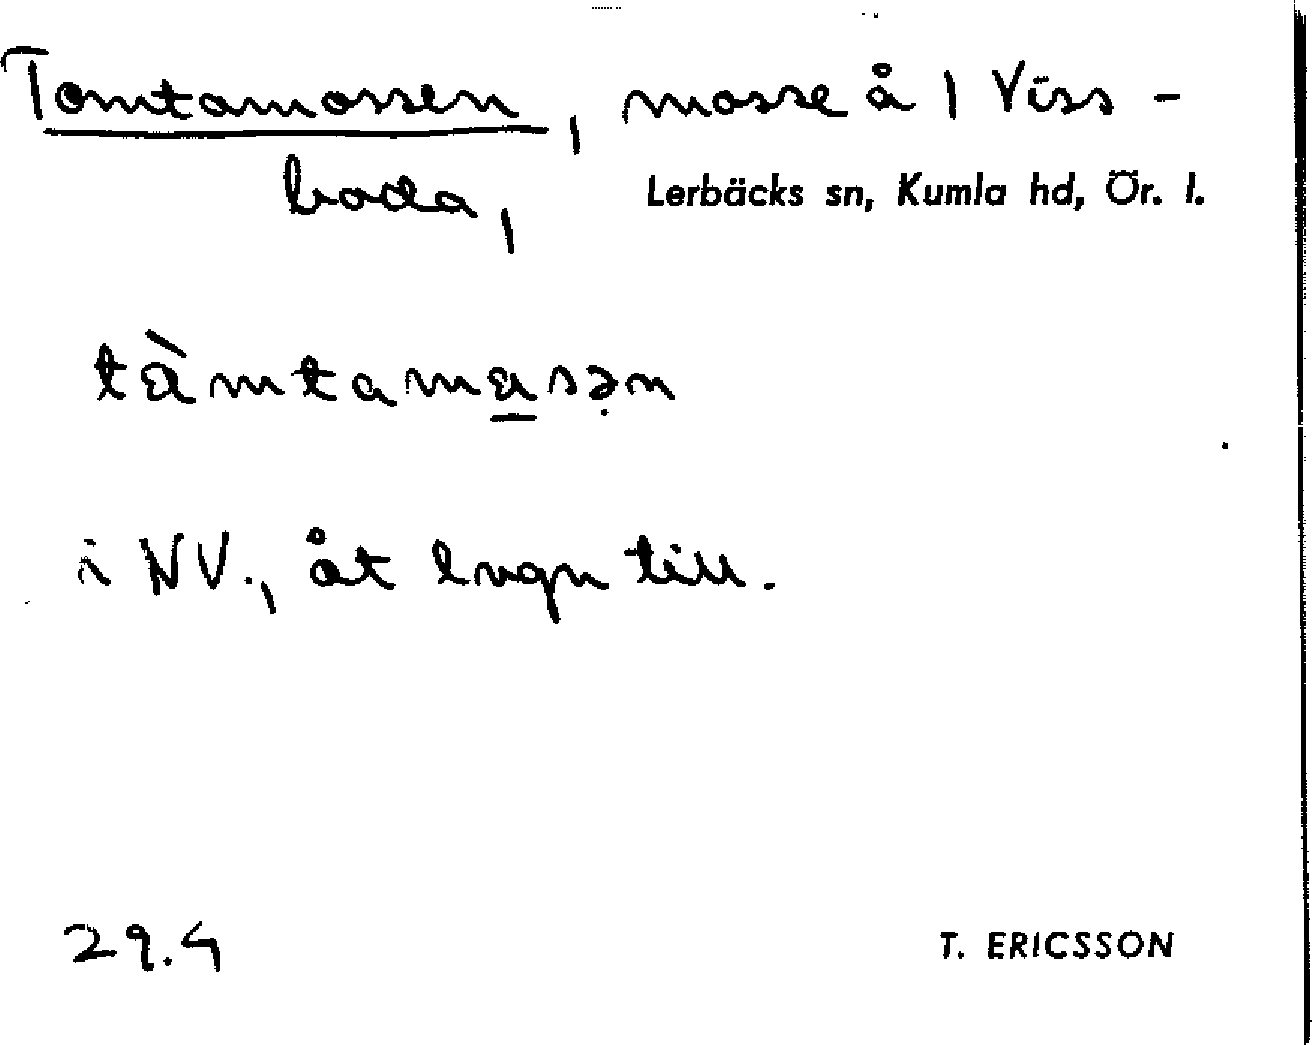 Tomtamossen, mosse å 1 Viss-
boda,
Lerbäcks sn, Kumla hd, Ör. l.
i NV., åt Lugn till.
29.4
T. ERICSSON